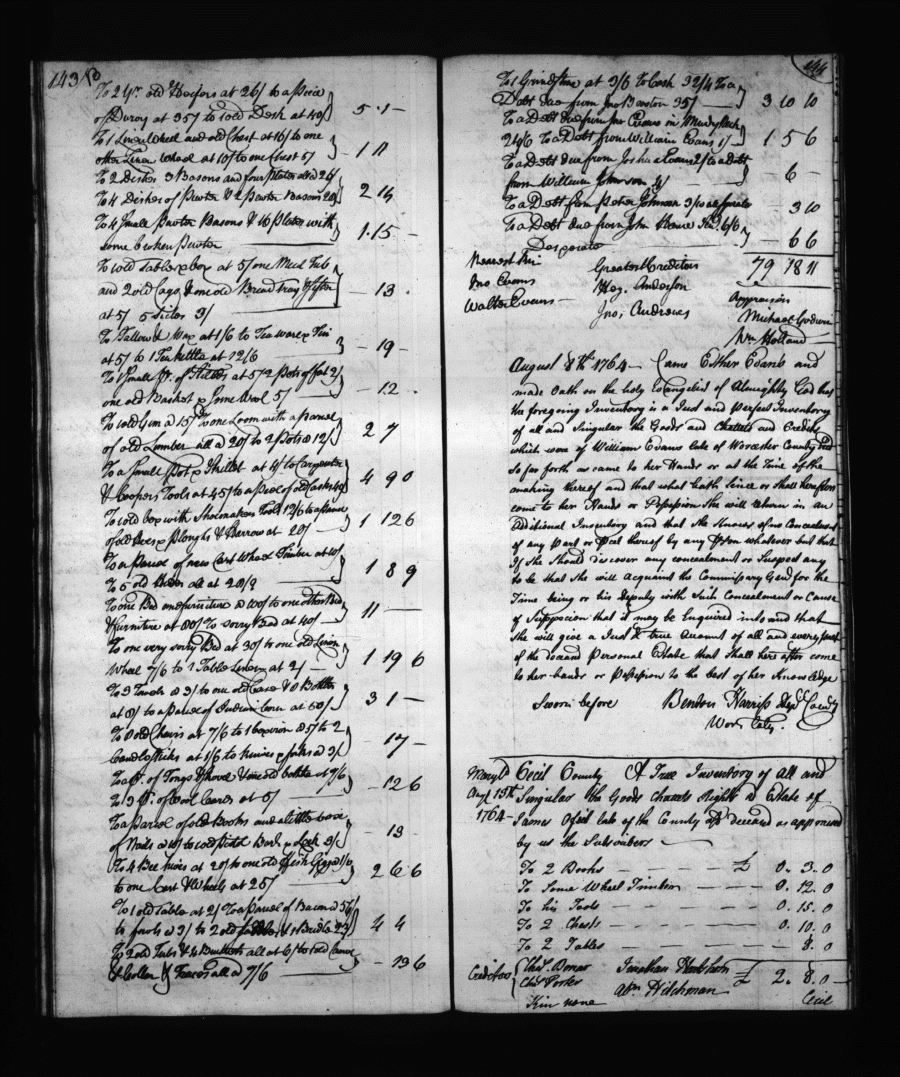 143
To 2 yr. old Heifers at 26/ to a piece
of Duroy at 35/ to 1 old Desk at 40/ 5 " 1 –
To 1 Linen Wheel and old Chest at 16/ to one
other Linen Wheel at 10/ to one Chest 5/ – 1 11
To 2 Dishes 3 Basons and four plates
To 4 Dishes of Pewter & 2 Pewter Basons 2 14
To 4 Small Pewter Basons & 16 Plates with
some broken pewter 1. 15 –
To 1 old Table & box at 5/ one Meal Tub
and 2 old Caggs & one old Bread tray & Sifter
at 5/ 5 Sides 3/ – 13 .
To Tallow & Wax at 1/6 to Tea ware & Tin
at 5/ to 1 Teakettle at 12/6 – 19 –
To 1 Small pr. of at 5/ 2 pots of fat 2/
one old Basket & Some Wool 5/ – 12 .
To 1 old Gun a 15/ To one Loom with a parcel
of old Lumber all a 20/ to 2 Pots @ 12/ 2 7
To a Small Pot & Skillet at 4/ to Carpenters
& Coopers Tools at 45/ to a pcel of old Casks 4 9 0
To 1 old box with Shoemakers Tools 12/6 to a parcel
of old Axes & Ploughs & Harrow at 20/ 1 12 6
To a Parcel of new Cart Wheel Timber at 10/
To 5 old all at 20/9 1 8 9
To one Bed and furniture @ 100/ to one other Bed
& furniture at 80/ To sorry Bed at 40/ 11 –
To one very sorry Bed at 30/ to one old Linen
Wheel 7/6 to 1 Table Linen at 2/ 1 19 6
To 3 Towels @ 3/ to one old Case & 8 Bottles
at 8/ to a Parcel of Indian Corn at 50/ 3 1 –
To 8 old Chairs at 7/6 to 1 box iron @ 5/ to 2
Candlesticks at 1/6 to knives & forks @ 3/ 17 –
To a pr. of Tongs & Shovel & one old bottle at 7/6
To 3 pr. of Wool Cards at 5/ – 12 6
To a Parcel of old Books and a little box
of Nails a 10/ to 1 old Pistol Barl. & Lock 3/ – 13
To 4 Bee hives at 20/ to one old Fish Gigg 1/6
to one Cart & Wheels at 25/ 2 6 6
To 1 old Table at 2/ To a Parcel of Bacon a 57/
to fowls a 3/ to 2 old & 1 Bridle 4 4
To 2 old Tubs & 4 all at 6/ to 1 old Canoe
& Collar & Traces all a 7/6 – 13 6
144
To 1 Grindstone at 3/6 to Cash 32/4 To a
Debt due from Jno Baston 35/ 3 10 10
To a Debt due from Jno Evans in
24/6 To a Debt from William Evans 1/ 1 5 6
To a Debt due from Joshua Evans 2/ to a debt
from William Johnson 4/ 6 –
To a Debt from Peter Johnson 3/10 desperate – 3 10
To a Debt due from John 6/6
Desperate – 6 6
Nearest Kin Greatest Creditors 79 18 11
Jno Evans Hez. Anderson Appraisers
Walter Evans Jno; Andrews Michael Godwin
Wm Holland
August 8th 1764 – Came Esther Evans and
made Oath on the holy Evangelist of Almighty God that
the foregoing Inventory is a Just and perfect Inventory
of all and Singular the Goods and Chattels and Credits
which were of William Evans late of Worcester County decd
So far forth as came to her Hands or at the Time of the
making thereof and that what hath since or shall hereafter
come to her Hands or Possession She will return in an
additional Inventory and that she knows of no Concealment
of any Part or Pcel thereof by any pson whatever but that
If She Should discover any concealment or Suspect any
to be that She will acquaint the Commissary Genl for the
Time being or his Deputy with Such Concealment or Cause
of Suspicion that it may be Enquired into and that
She will give a Just & true Account of all and every part
of the deceased Personal Estate that shall here after come
to her hands or possession to the best of her knowledge
Sworn before Benton Harriss Depy Comry
Worr. Coty.
Maryld Cecil County A True Inventory of all and
Augt 13th Singular the Goods Chattels Rights & Estate of
1764 – James late of the County afd deceased as appraised
by us the Subscribers
To 2 Books £ 0. 3. 0
To Some Wheel Timber 0. 12. 0
To his Tools 0. 15. 0
To 2 Chests 0. 10. 0
To 2 Tables 8. 0
Creditors Chas. Jonathan £ 2. 8. 0
Chas Porter Abm Hitchman
Kin none Cecil